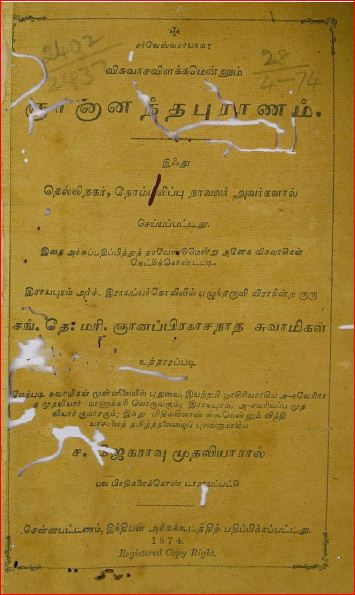 2402
2433
28
4-74
சர்வேஸ்வராயநம:
விசுவாசவிளக்கமென்னும்
ஞானானந்தபுராணம்.
இஃது
தெல்லிநகர், தோம்பிலிப்பு நாவலர் அவர்களால்
செய்யப்பட்டது.
இதை அச்சுப்பதிப்பித்துத் தரவேண்டுமென்று அனேக விசுவாசிகள்
கேட்டுக்கொண்டபடி.
இராயபுரம் அர்ச். இராயப்பர்கோவிலில் எழுந்தருளி விராநின்ற குரு
சங். தெ. மரி. ஞானப்பிரகாசநாத சுவாமிகள்
உத்தாரப்படி
மேற்படி சுவாமிகள் முன்னிலையில் புதுவை,
முதலியார் மாணாக்கரி லொருவரும், இராயபுரம்,
லியார் குமாரரும், இந்து
தமிழ்த்தலைமைப் புலவருமாகிய
ச. முதலியாரால்
பல பிரதிகளைக்கொண் டாராயப்பட்டு
சென்னபட்டணம், இந்தியன் அச்சுக்கூடத்திற் பதிப்பிக்கப்பட்டது.
1874.
Registered Copy Right.